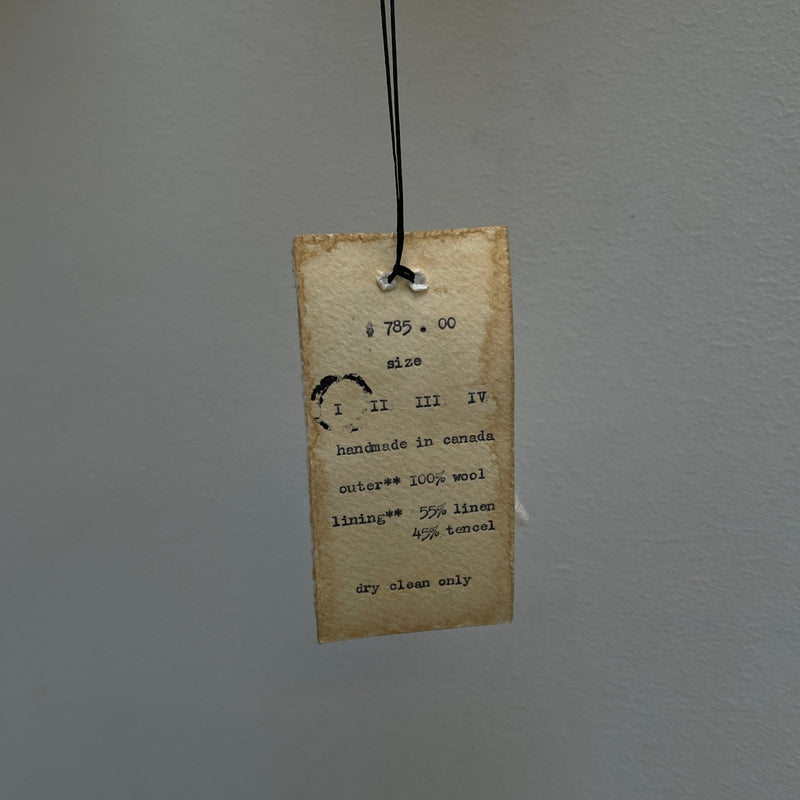 $ 785.00
size
I II III IV
handmade in canada
outer** 100% wool
lining** 55% linen
45% tencel
dry clean only